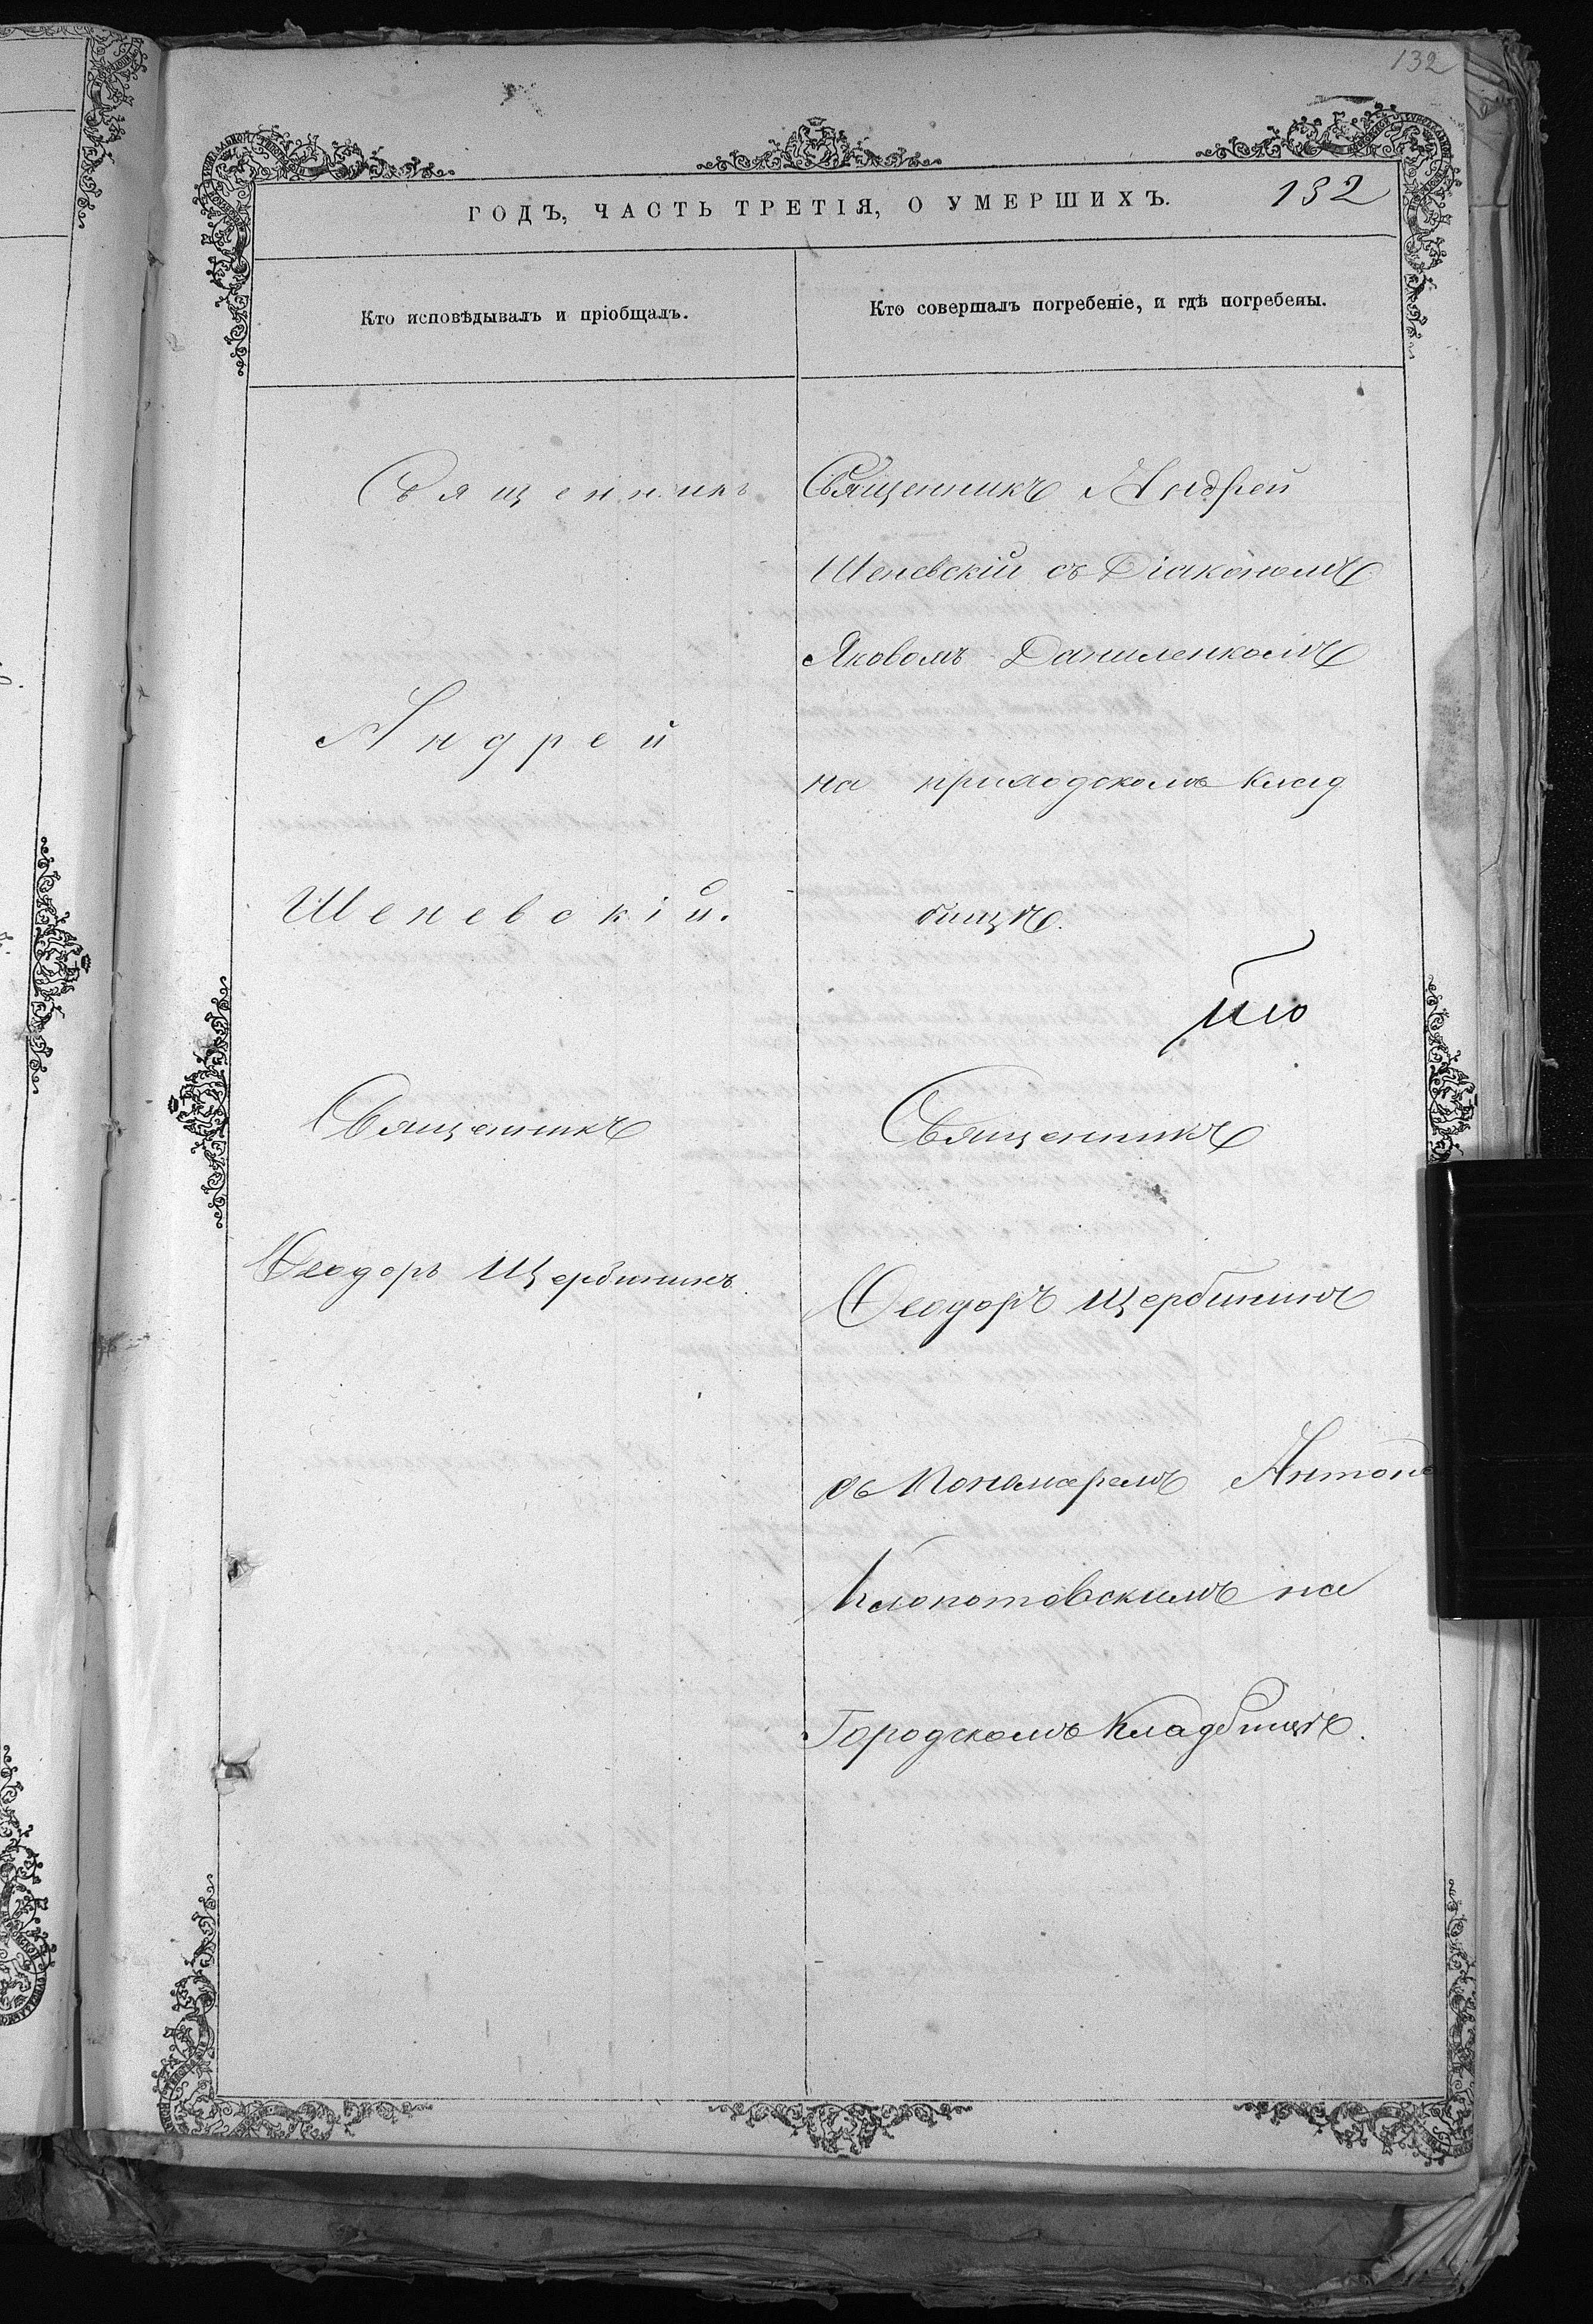 132
132
ГОДЪ, ЧАСТЬ ТРЕТІЯ, О УМЕРШИХЪ.
Кто исповѣдывалъ и пріобщалъ.
Кто совершалъ погребеніе, и гдѣ погребены.
Священникъ
Андрей
Шеневскій.
Священникъ
Ѳеодоръ Щербининъ
Священникъ Андрей
Шеневскій съ Діакономъ
Яковомъ Даниленкомъ
на приходскомъ клад
бищѣ.
Священникъ
Ѳеодоръ Щербининъ
съ Пономаремъ Антоно
Клопотовскимъ на
Городскомъ Кладбищѣ.